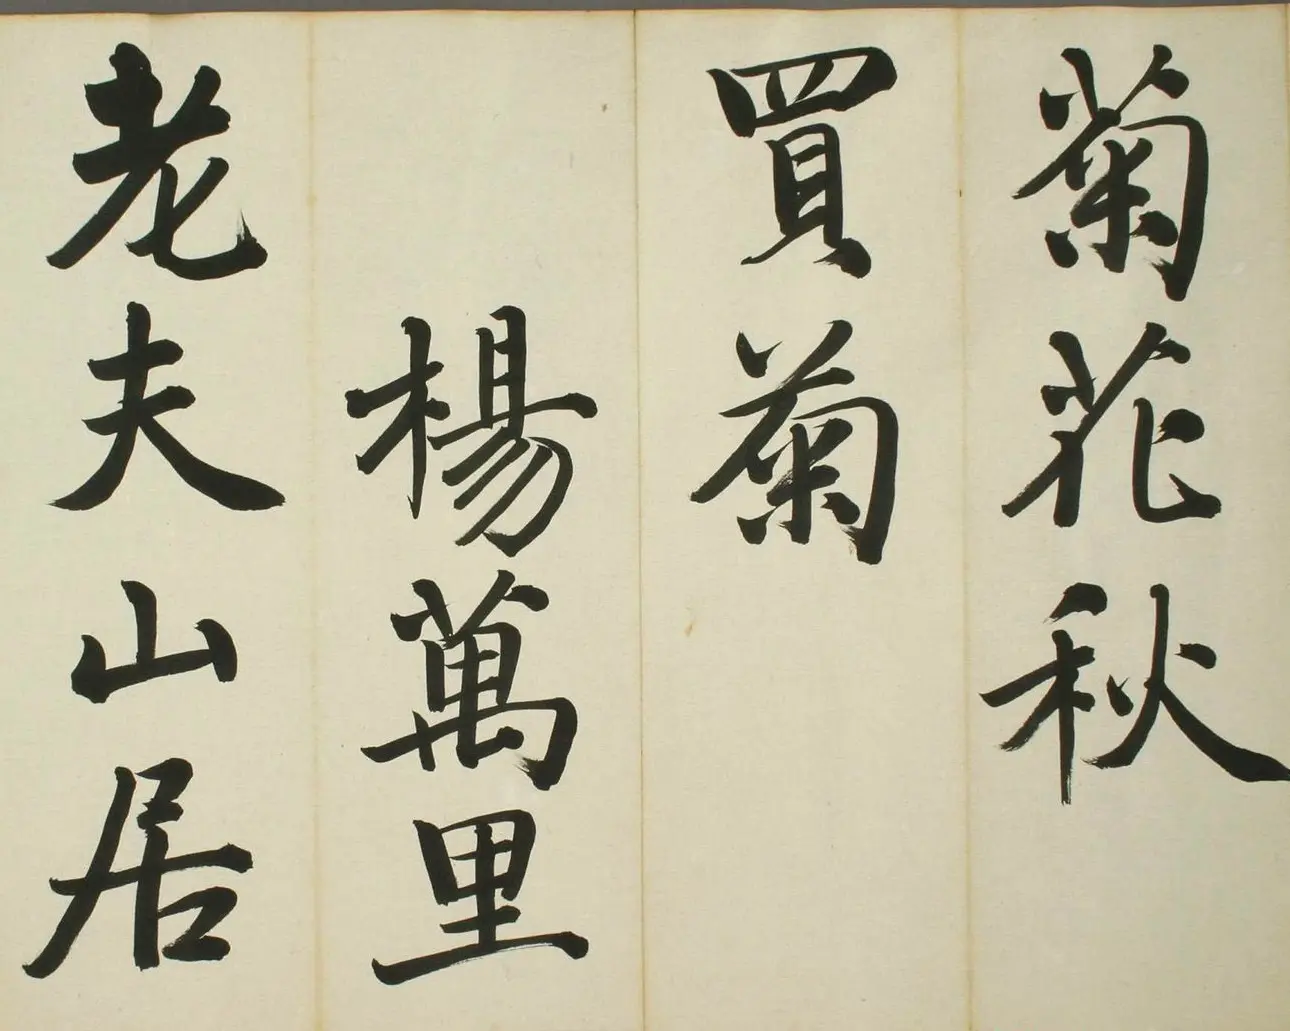 菊花秋
買菊
楊萬里
老夫山居